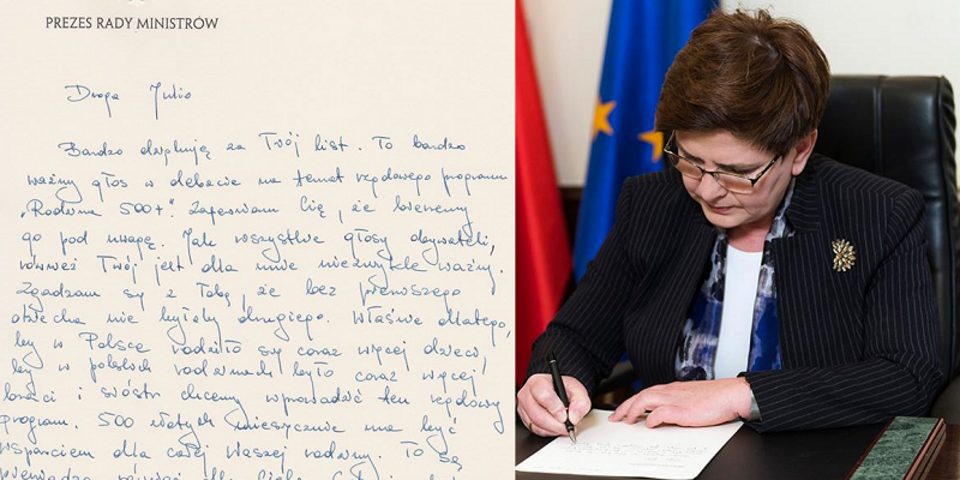 PREZES RADY MINISTRÓW
Droga Julio
Bardzo dziękuję za Twój list. To bardzo
ważny głos w debacie na temat rządowego programu
„Rodzina 500+". Zapewniam Cię, że bierzemy
go pod uwagę. Jak wszystkie głosy obywateli,
również Twój jest dla mnie niezwykle ważny.
Zgadzam się z Tobą, że bez pierwszego
dziecka nie byłoby drugiego. Właśnie dlatego,
by w Polsce rodziło się coraz więcej dzieci,
by w polskich rodzinach było coraz więcej
braci i sióstr chcemy wprowadzić ten rządowy
program. 500 złotych miesięcznie ma być
wsparciem dla całej Waszej rodziny. To są
również dla Ciebie